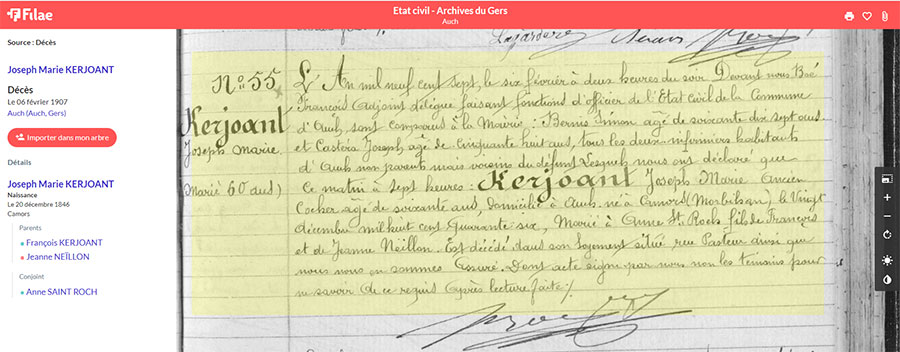 Filae
Etat civil - Archives du Gers
Auch
Source : Décès
Joseph Marie KERJOANT
Décès
Le 06 février 1907
Auch (Auch, Gers)
Importer dans mon arbre
Détails
Joseph Marie KERJOANT
Naissance
Le 20 décembre 1846
Camors
Parents
François KERJOANT
Jeanne NEÏLLON
Conjoint
Anne SAINT ROCH
No 55
Kerjoant
Joseph Marie
Marié 60 ans)
L'An mil neuf cent sept, le six février à deux heures du soir Devant nous
François Adjoint délégué faisant fonctions d'officier de l'Etat Civil de la Commune
d'Auch, sont comparus à la Mairie : Bernis Simon agé de soixante dix sept ans
et Castéra Joseph, agé de cinquante huit ans, tous les deux infirmiers habitants
d'Auch non parents mais voisins du défunt Lesquels nous ont déclaré que
Ce matin à sept heures : Kerjoant Joseph Marie Ancien
Cocher agé de soixante ans, domicilié à Auch né à Camors (Morbihan) le Vingt
décembre mil huit cent Quarante six, Marié à Anne St Roch fils de François
et de Jeanne Neïllon. Est décédé dans son logement situé rue Pasteur ainsi que
nous nous en sommes assuré. Dont acte signé par nous non les témoins pour
ne savoir de ce requis après lecture faite /.